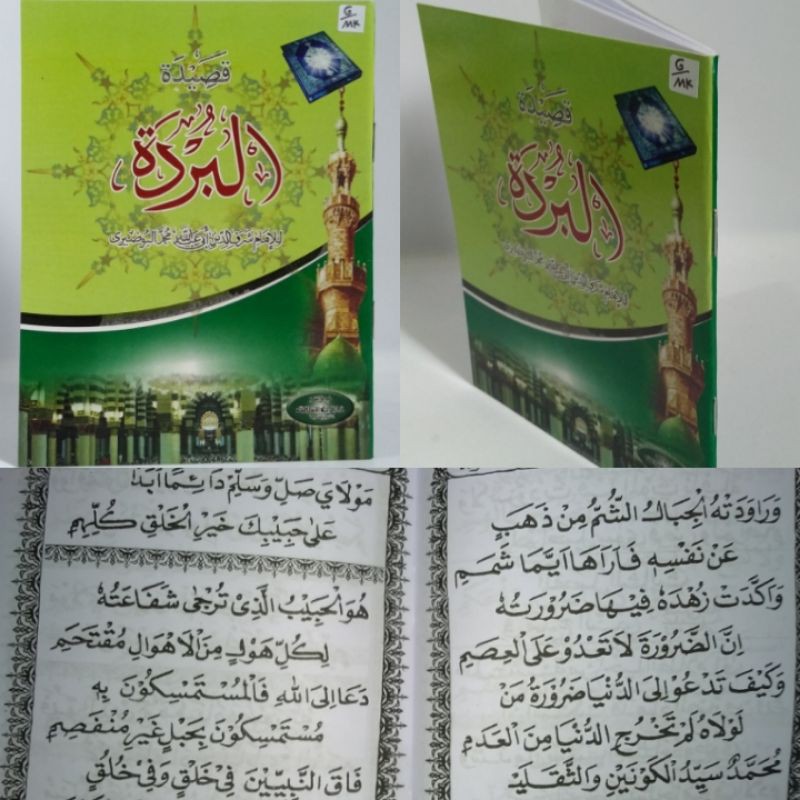 G
MK
قَصِيْدَة
البُرْدَة
للإمام شرف الدين أبي عبد الله محمد البوصيري
G
MK
قَصِيْدَة
البُرْدَة
للإمام شرف الدين أبي عبد الله محمد البوصيري
وَرَاوَدَتْهُ الْجِبَالُ الشُّمُّ مِنْ ذَهَبٍ
عَنْ نَفْسِهِ فَاَرَاهَا اَيَّمَا شَمَمِ
وَاَكَّدَتْ زُهْدَهُ فِيْهَا ضَرُوْرَتُهُ
اِنَّ الضَّرُوْرَةَ لَا تَعْدُوْ عَلَى الْعِصَمِ
وَكَيْفَ تَدْعُوْ اِلَى الدُّنْيَا ضَرُوْرَةُ مَنْ
لَوْلَاهُ لَمْ تَخْرُجِ الدُّنْيَا مِنَ الْعَدَمِ
مُحَمَّدٌ سَيِّدُ الْكَوْنَيْنِ وَالثَّقَلَيْـ
مَوْلَايَ صَلِّ وَسَلِّمْ دَائِمًا اَبَدًا
عَلَى حَبِيْبِكَ خَيْرِ الْخَلْقِ كُلِّهِمِ
هُوَ الْحَبِيْبُ الَّذِيْ تُرْجَى شَفَاعَتُهُ
لِكُلِّ هَوْلٍ مِنَ الْاَهْوَالِ مُقْتَحَمِ
دَعَا اِلَى اللهِ فَالْمُسْتَمْسِكُوْنَ بِهِ
مُسْتَمْسِكُوْنَ بِحَبْلٍ غَيْرِ مُنْفَصِمِ
فَاقَ النَّبِيِّيْنَ فِيْ خَلْقٍ وَفِيْ خُلُقٍ